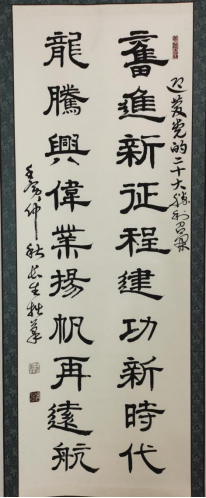 迎党的二十大胜利召開
奮進新征程建功新時代
龍騰興偉業揚帆再遠航
壬寅仲秋长生拙笔